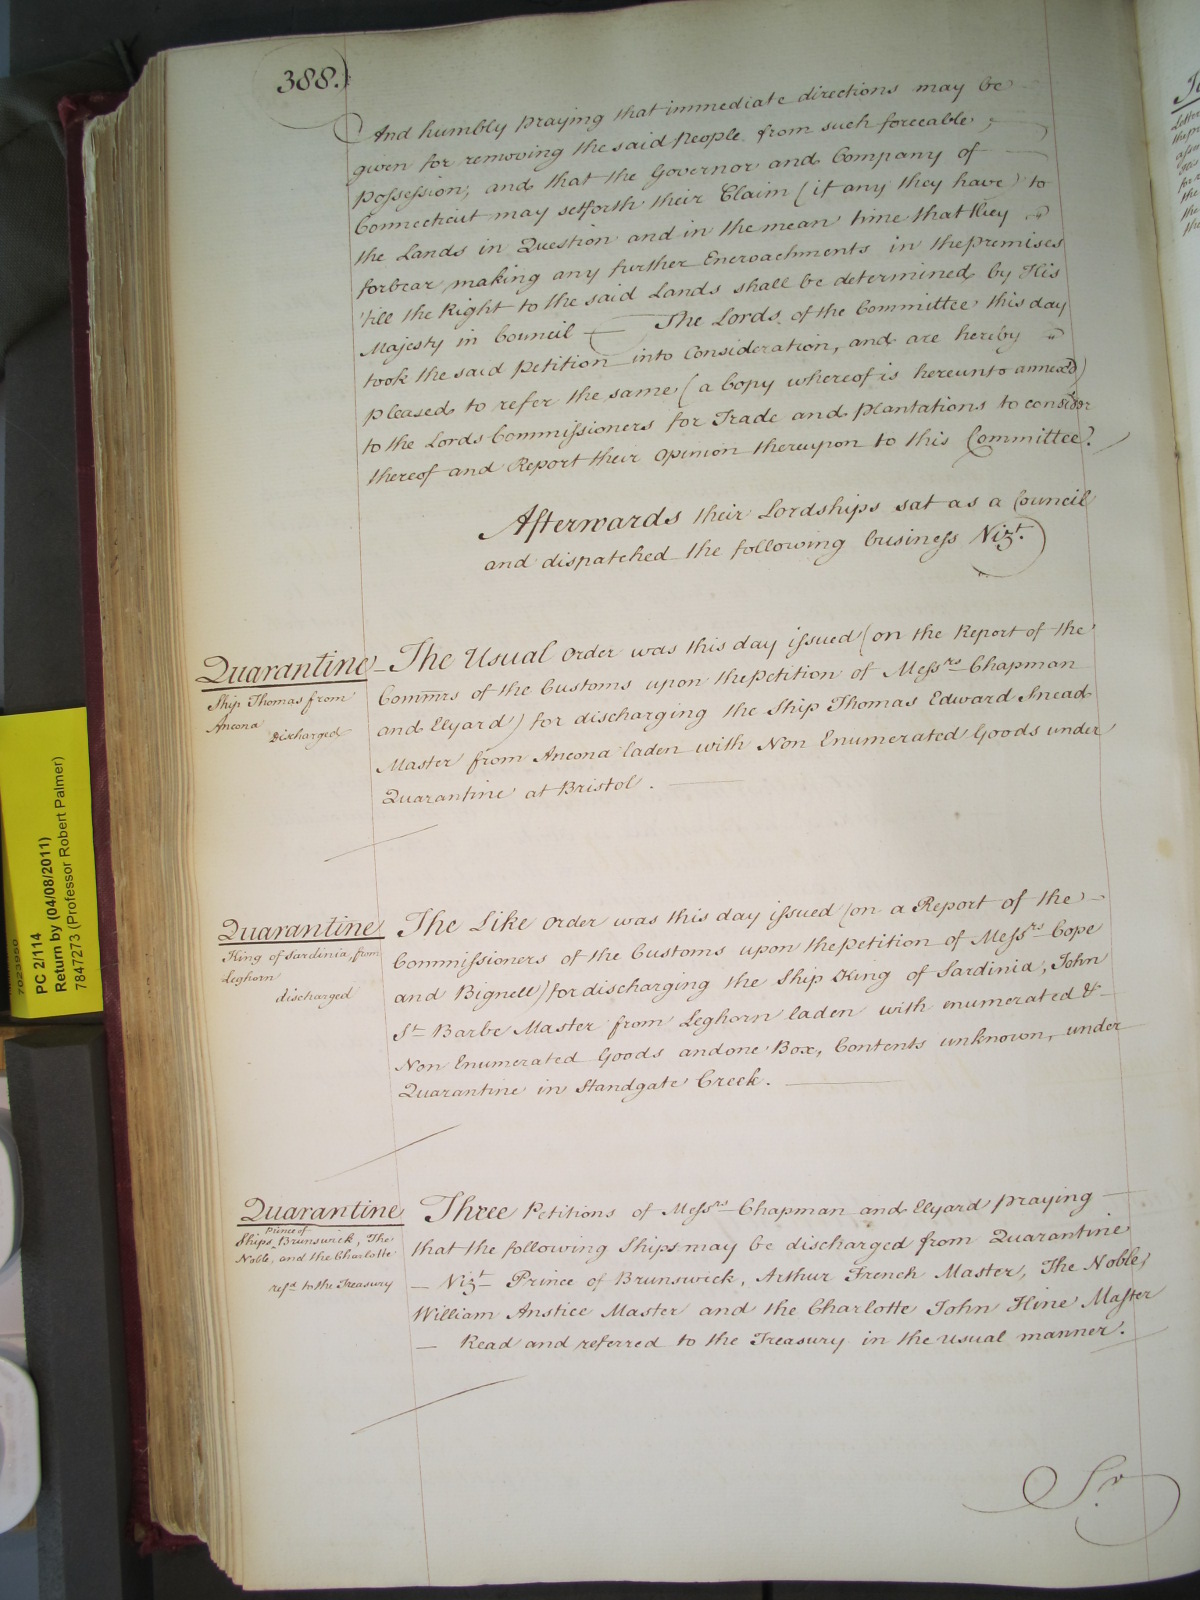 388.
And humbly praying that immediate directions may be
given for removing the said People from such forceable
possession; and that the Governor and Company of
Connecticut may setforth their Claim (if any they have) to
the Lands in Question and in the mean time that they
forbear making any further Encroachments in the premises
'till the Right to the said Lands shall be determined by His
Majesty in Council — The Lords of the Committee this day
took the said Petition into Consideration, and are hereby
pleased to refer the same (a Copy whereof is hereunto annexed)
to the Lords Commissioners for Trade and Plantations to consider
thereof and Report their Opinion thereupon to this Committee.
Afterwards their Lordships sat as a Council
and dispatched the following business Vizt.
Quarantine
Ship Thomas from
Ancona
Discharged
The Usual Order was this day issued (on the Report of the
Commrs of the Customs upon the Petition of Messrs Chapman
and Elyard) for discharging the Ship Thomas Edward Snead
Master from Ancona laden with Non Enumerated Goods under
Quarantine at Bristol.
Quarantine
King of Sardinia, from
Leghorn
discharged
The Like Order was this day issued (on a Report of the
Commissioners of the Customs upon the Petition of Messrs Cope
and Bignell) for discharging the Ship King of Sardinia, John
St Barbe Master from Leghorn laden with enumerated &
Non Enumerated Goods and one Box, Contents unknown, under
Quarantine in Standgate Creek.
Quarantine
Prince of
Ships Brunswick, The
Noble, and the Charlotte
refd to the Treasury
Three Petitions of Messrs Chapman and Elyard praying
that the following Ships may be discharged from Quarantine
— Vizt Prince of Brunswick, Arthur French Master, The Noble,
William Anstice Master and the Charlotte John Hine Master
— Read and referred to the Treasury in the usual manner.
PC 2/114
Return by (04/08/2011)
7847273 (Professor Robert Palmer)